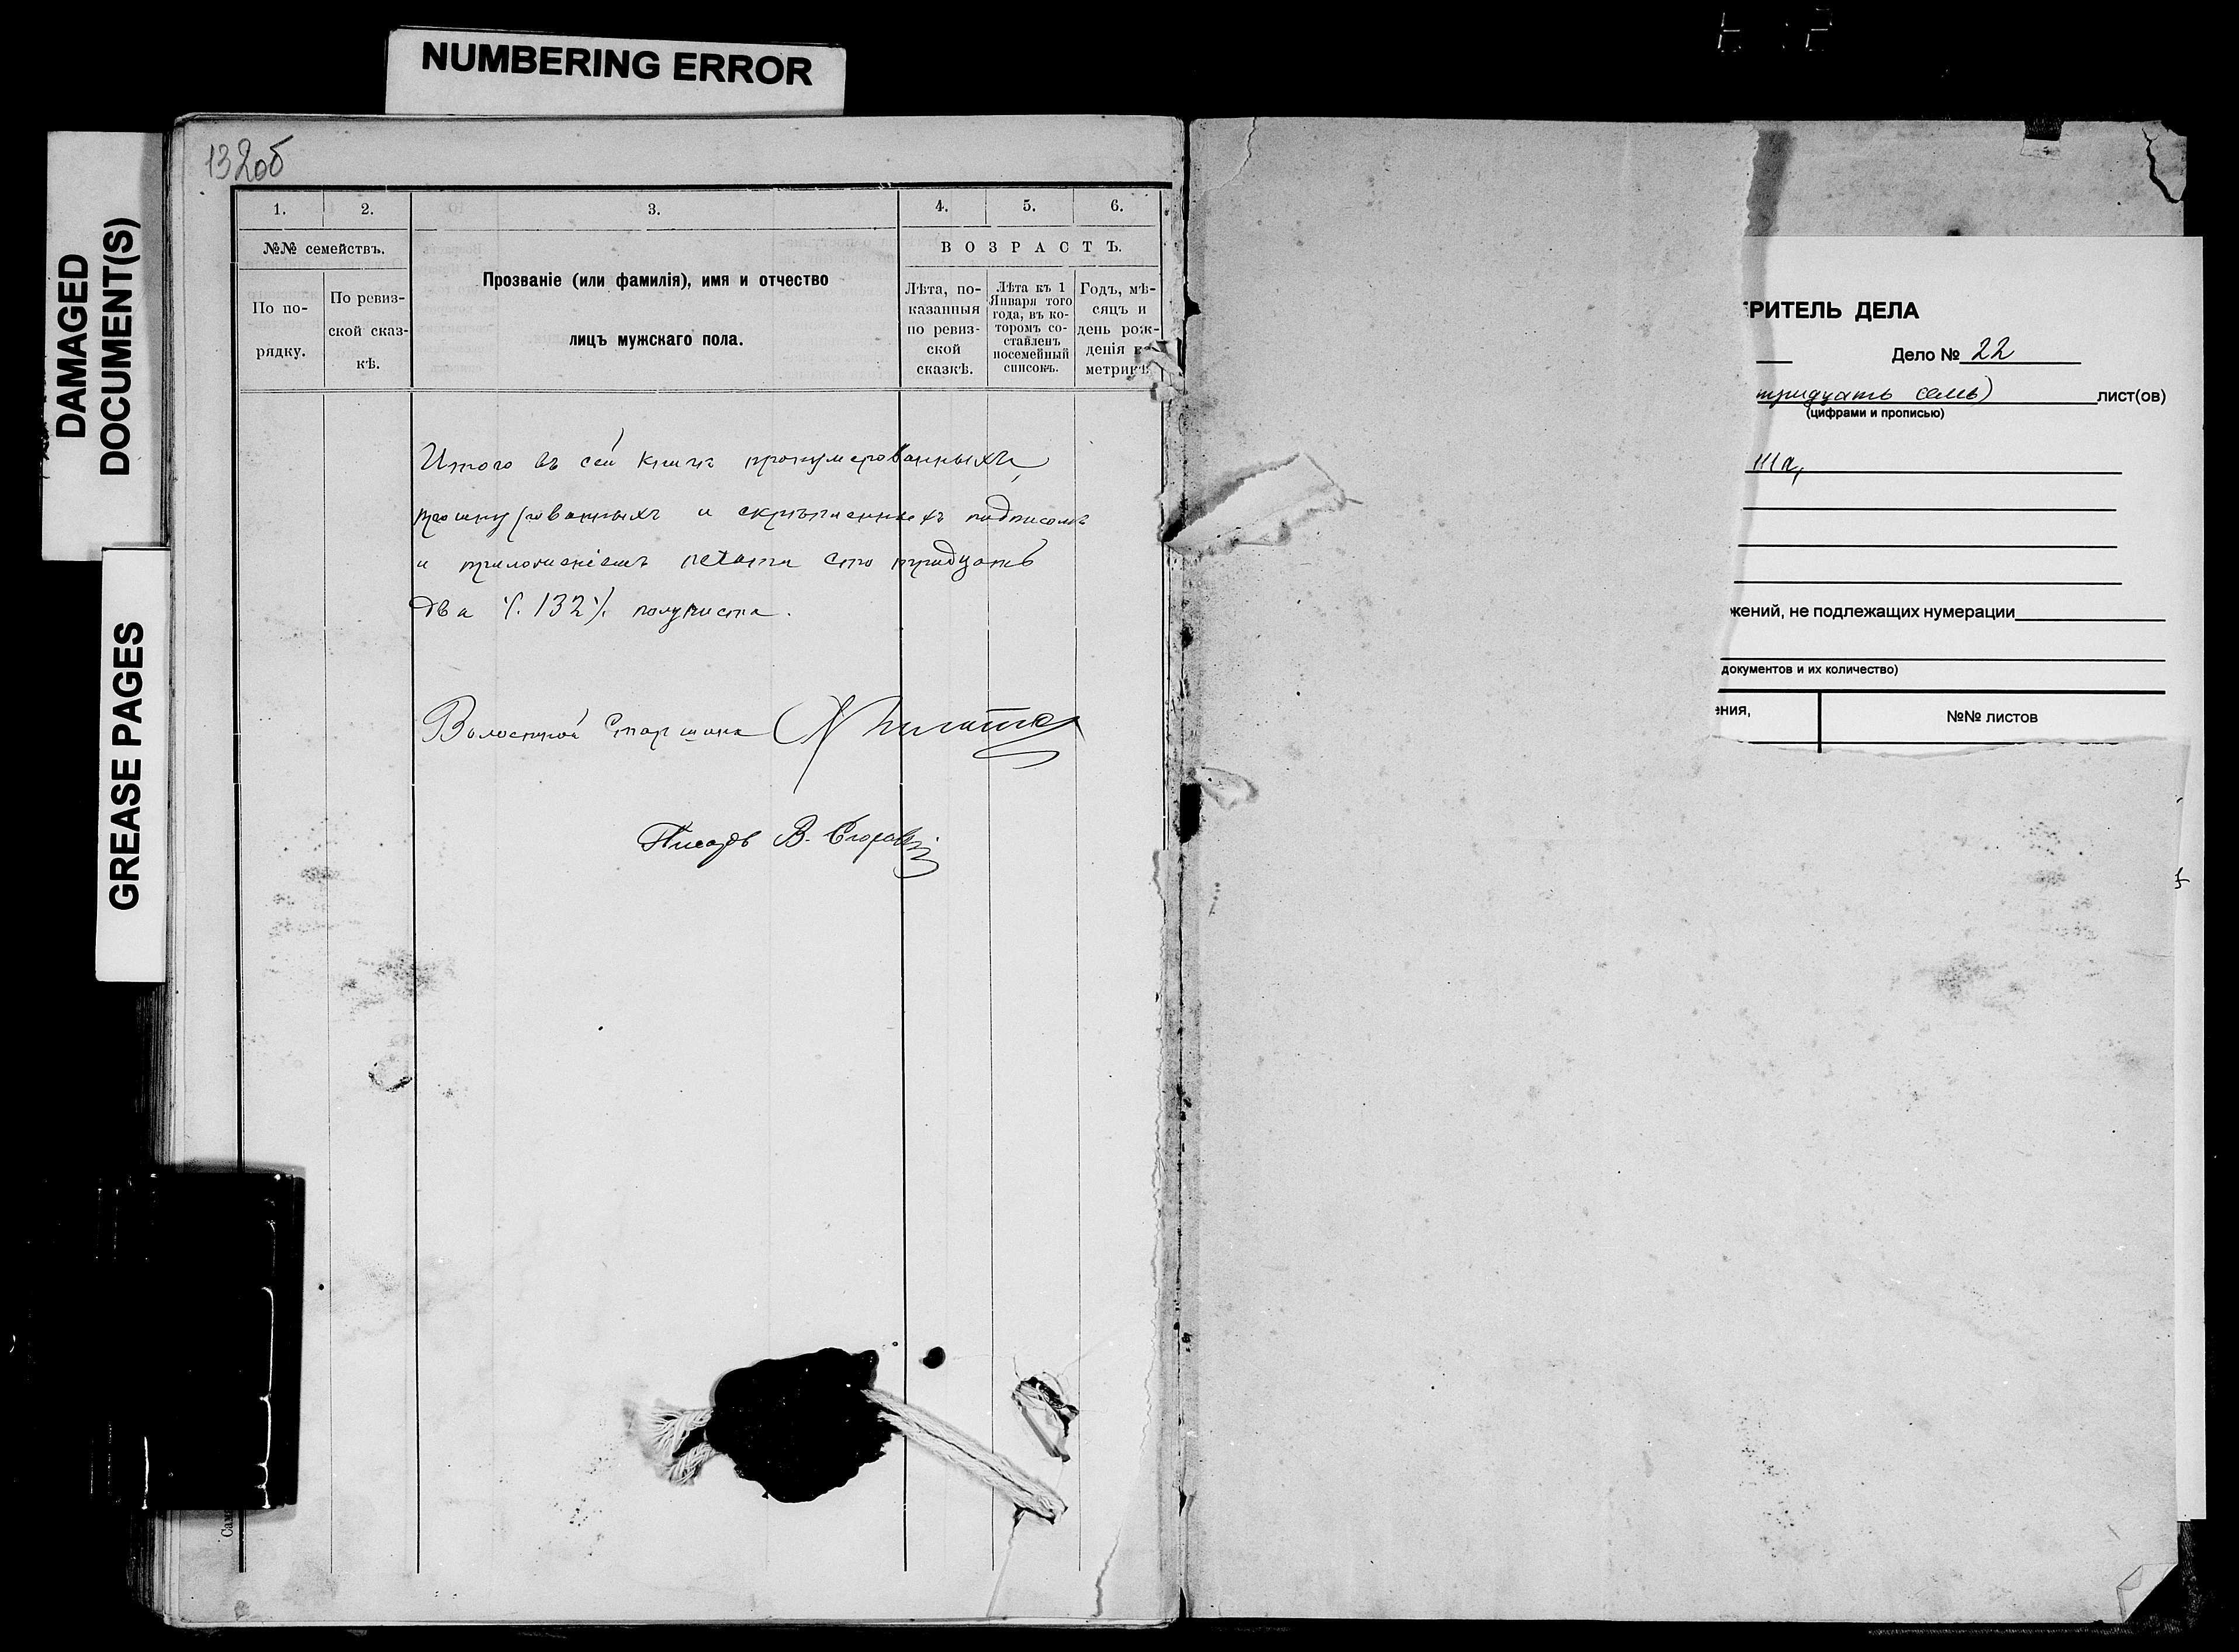 NUMBERING ERROR
DAMAGED
DOCUMENT(S)
GREASE PAGES
132об
1. 2. 3. 4. 5. 6.
№№ семействъ.
По по-
рядку.
По ревиз-
ской сказ-
кѣ.
Прозваніе (или фамилія), имя и отчество
лицъ мужскаго пола.
ВОЗРАСТЪ.
Лѣта, по-
казанныя
по ревиз-
ской
сказкѣ.
Лѣта къ 1
Января того
года, въ ко-
торомъ со-
ставленъ
посемейный
списокъ.
Годъ, мѣ-
сяцъ и
день рож-
денія
метрикѣ.
Итого въ сей книгѣ пронумерованныхъ,
прошнурованныхъ и скрѣпленныхъ подписомъ
и приложеніемъ печати сто тридцать
два ·/. 132 ·/. полулиста.
Волостной Старшина
Писарь В.
Сам
РИТЕЛЬ ДЕЛА
Дело № 22
тридцать семь) лист(ов)
(цифрами и прописью)
111а,
жений, не подлежащих нумерации
документов и их количество)
ения,
№№ листов